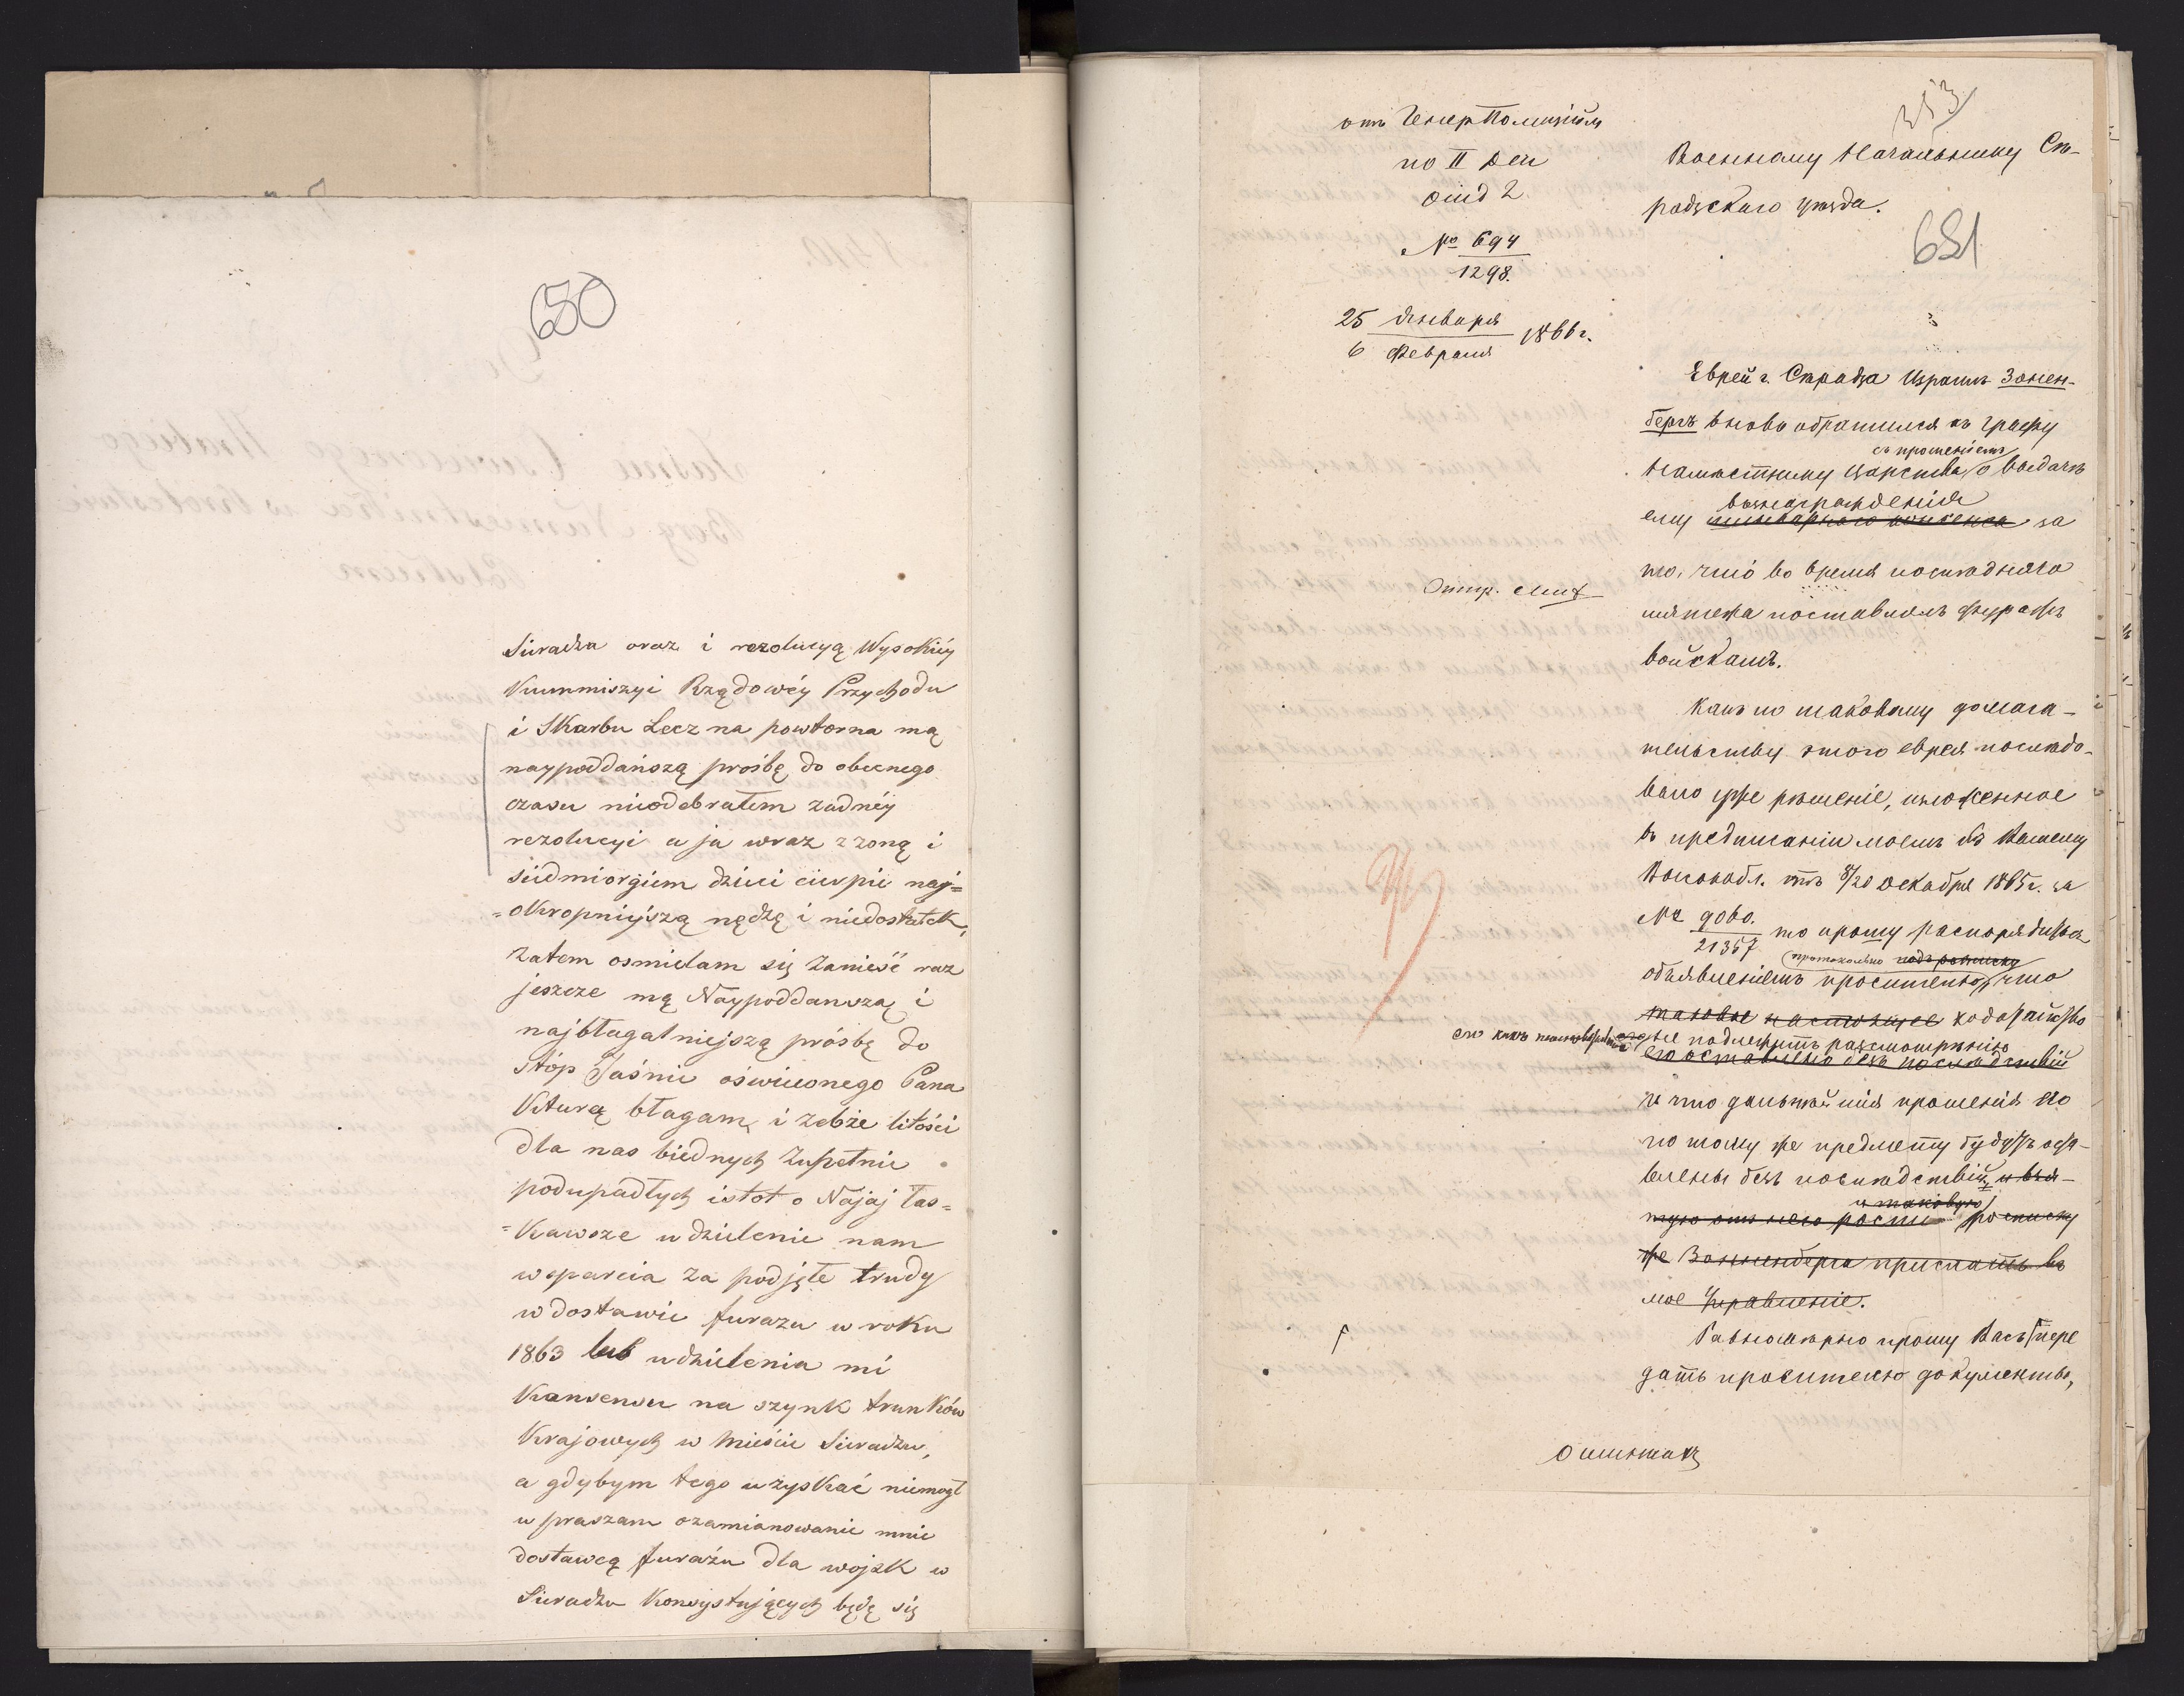 650
Siradza oraz i rezolucyą Wysokiéy
Kummiszyi Rządowéy Przychodu
i Skarbu Lecz na powtorna mą
naypoddańszą prośbę do obecnego
czasu nieodebratem zadnéy
rezolucyi a ja wraz z zoną i
siedmiorgiem dzieci cierpie naj=
=okropniejszą nędzę i niedostatek,
zatem osmielam się zanieść raz
jeszcze mą Naypoddanszą i
najbłagalniejszą prósbę do
stóp Jaśnie oświeconego Pana
Którą błagam i zebże litości
dla nas biednych zupełnie
podupadłych istot o Najaj łas=
=kawsze udzielenie nam
wsparcia za podjęte trudy
w dostawie furazu w roku
1863 lub udzielenia mi
Kansensu na szynk trunków
Krajowych w Mieście Sieradzu,
a gdybym tego uzyskać niemogł
upraszam ozamianowanie mnie
dostawcą furażu dla wojsk w
Sieradzu Konsystujących będę się
от ГенерПолиційм
по II Дел
отд 2.
№ 694
1298.
25 Января
6 Февраля 1866 г.
353
Военному Начальнику Сѣ-
радзскаго уѣзда.
651
Еврей г. Сѣрадза Израиль Зонен-
бергъ вновь обратился къ Графу
съ прошеніемъ
Намѣстнику Царства о выдачѣ
вознагражденія
ему шинкарнаго консенса за
то, что во время послѣдняго
мятежа поставлялъ фуражъ
войскамъ.
Отпр.
Какъ по таковому домога-
тельству этого еврея послѣдо-
вало уже рѣшеніе, изложенное
въ предписаніи моемъ къ Вашему
Высокобл. отъ 8/20 Декабря 1865 г. за
№ 9060.
21357 то прошу распорядиться
протокольно подъ росписку
объявленіемъ просителю, что
таковое настоящее ходатайство
его какъ не подлежитъ разсмотрѣнію
его оставлено безъ послѣдствій
и что дальнѣйшія прошенія его
по тому же предмету будутъ оста-
влены безъ послѣдствій, и взя-
и таковую
тую отъ него роспи росписку
же Зонненберга прислать въ
мое Управленіе.
Равномѣрно прошу Васъ пере
дать просителю документы,